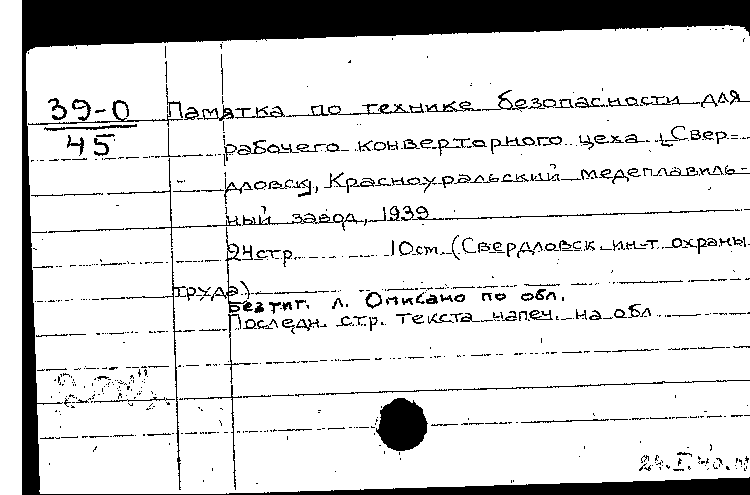 39-0
45
Памятка по технике безопасности для
рабочего конверторного цеха [Свер=
дловск], Красноуральский медеплавиль-
ный завод, 1939
24стр. 10см. (Свердловск. ин-т охраны
труда)
Без тит. л. Описано по обл.
Последн. стр. текста напеч. на обл.
24.I.40.